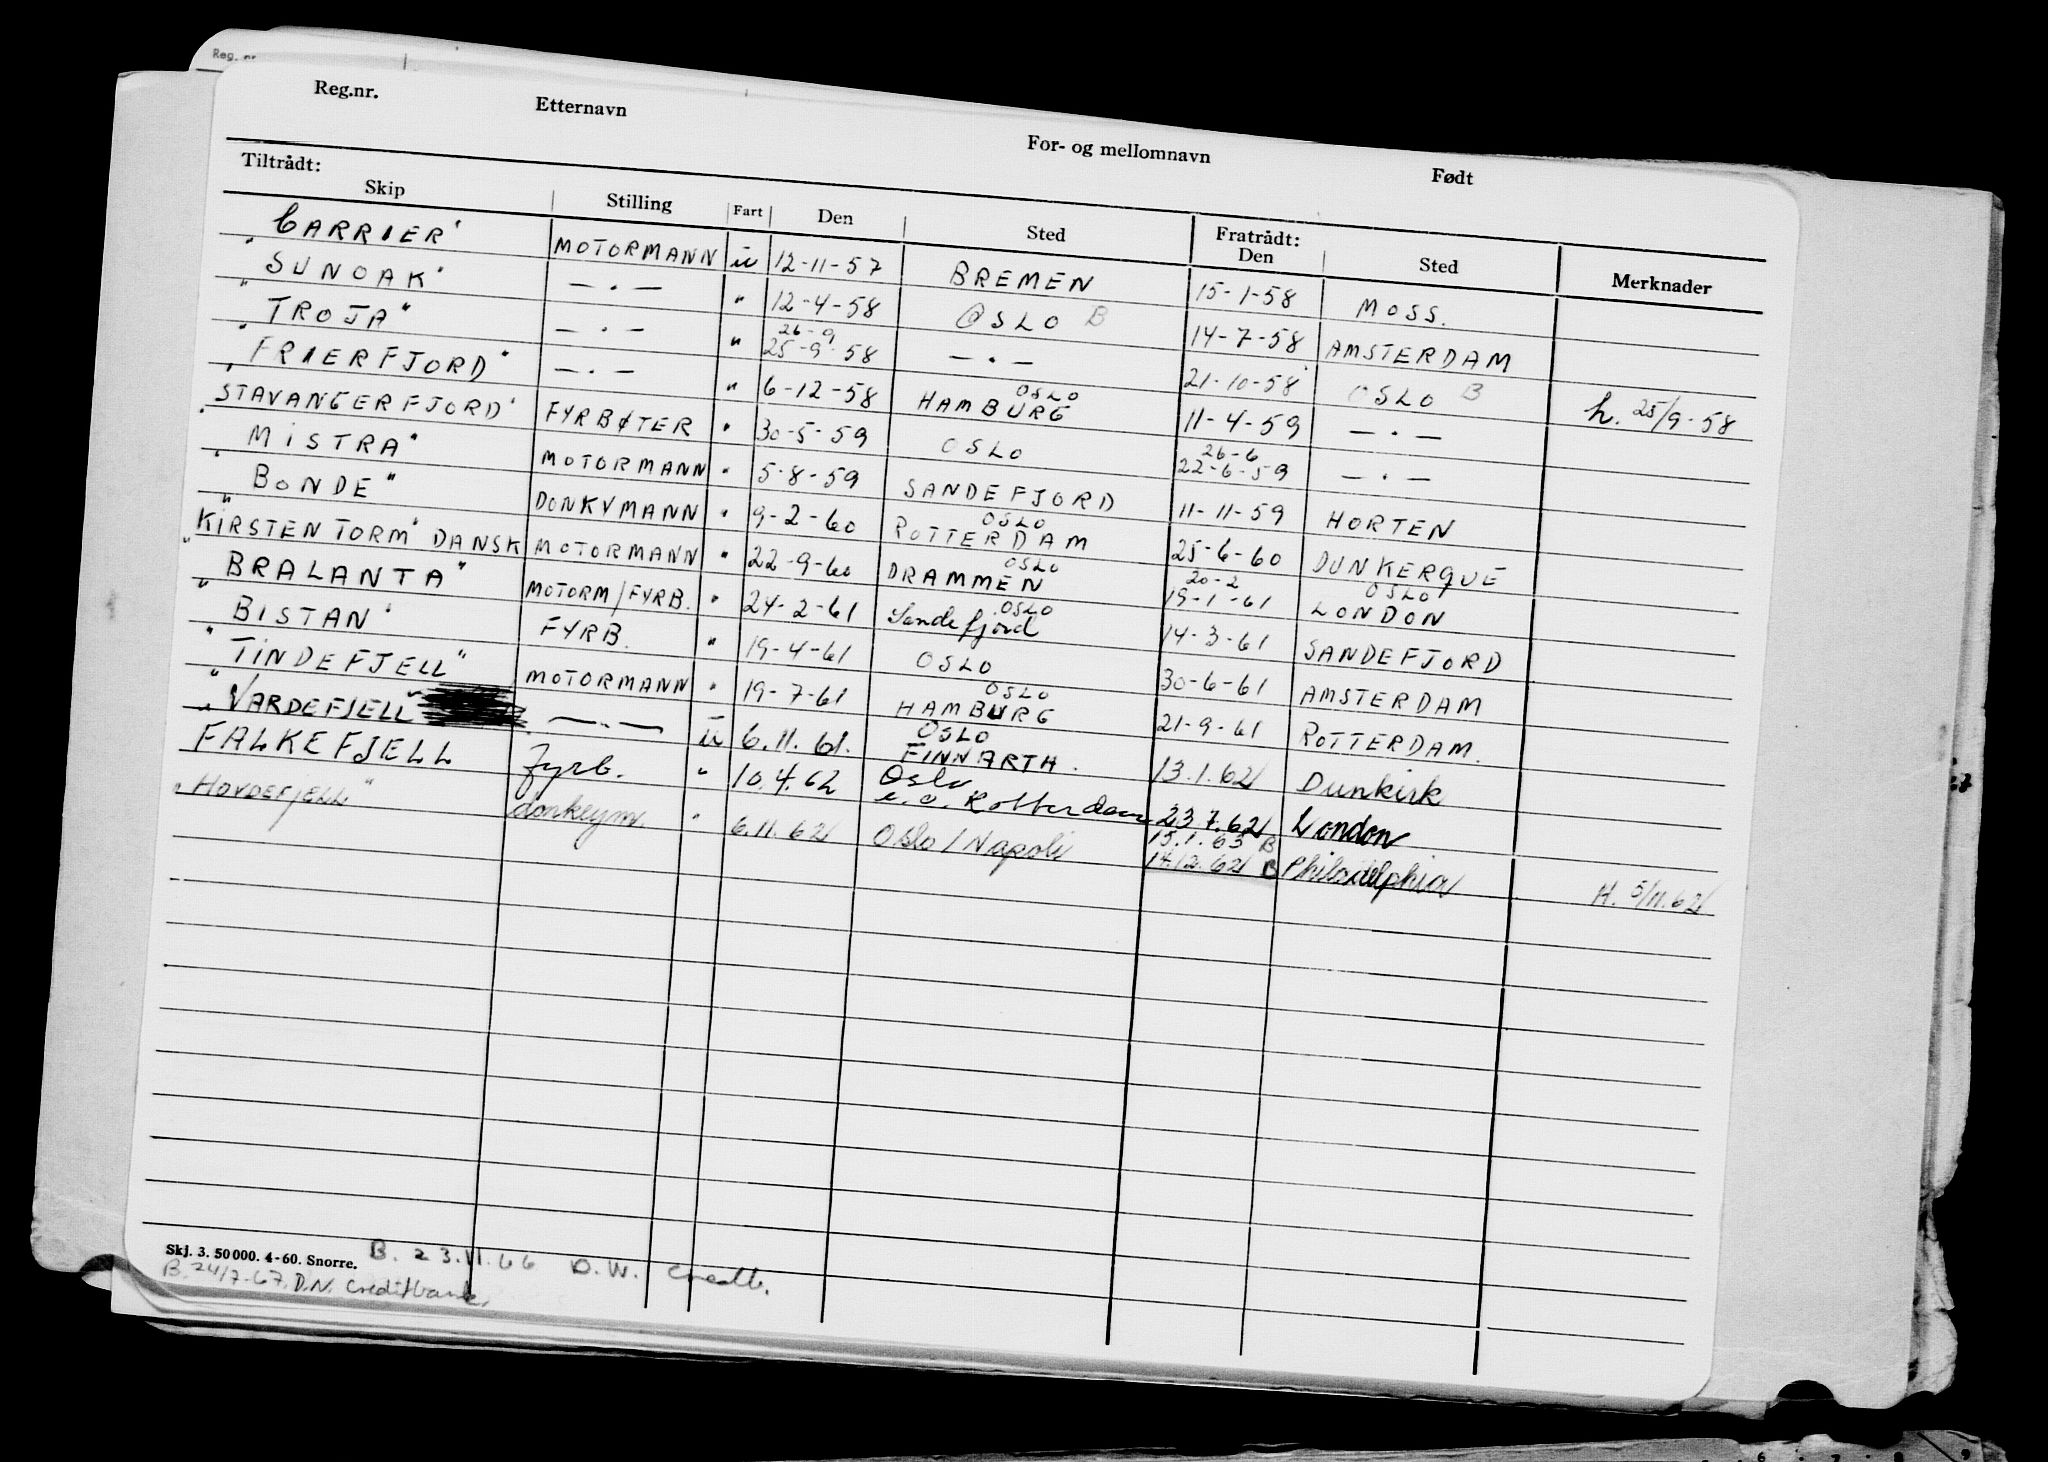 Reg. nr
Reg.nr. Etternavn For- og mellomnavn Født
Tiltrådt: Fratrådt:
Skip Stilling Fart Den Sted Den Sted Merknader
"CARRIER" MOTORMANN u 12-11-57 BREMEN 15-1-58 MOSS.
"SUNOAK" — . — " 12-4-58 OSLO B 14-7-58 AMSTERDAM
"TROJA" — . — " 26-9 25-9-58 — . — 21-10-58 OSLO B h. 25/9-58
"FRIERFJORD" — . — " 6-12-58 OSLO HAMBURG 11-4-59 — . —
"STAVANGERFJORD" FYRBØTER " 30-5-59 OSLO 26-6 22-6-59 — . —
"MISTRA" MOTORMANN " 5-8-59 SANDEFJORD 11-11-59 HORTEN
"BONDE" DONKYMANN " 9-2-60 OSLO ROTTERDAM 25-6-60 DUNKERQUE
"KIRSTEN TORM" DANSK MOTORMANN " 22-9-60 OSLO DRAMMEN 20-2 19-1-61 OSLO LONDON
"BRALANTA" MOTORM/FYRB. " 24-2-61 OSLO Sandefjord 14-3-61 SANDEFJORD
"BISTAN" FYRB. " 19-4-61 OSLO 30-6-61 AMSTERDAM
"TINDEFJELL" MOTORMANN " 19-7-61 OSLO HAMBURG 21-9-61 ROTTERDAM.
"VARDEFJELL" — . — u 6.11.61. OSLO FINNARTH. 13.1.62 Dunkirk
FALKEFJELL Fyrb. " 10.4.62 Oslo e.o. Rotterdam 23.7.62 London
"HOVDEFJELL" donkeym. " 6.11.62 Oslo/Napoli 15.1.63 B 14.12.62 B Philadelphia H. 5/11.62
Skj. 3. 50 000. 4-60. Snorre. B. 23.11.66 D.W.
B. 24/7-67. D.N. Creditbank.